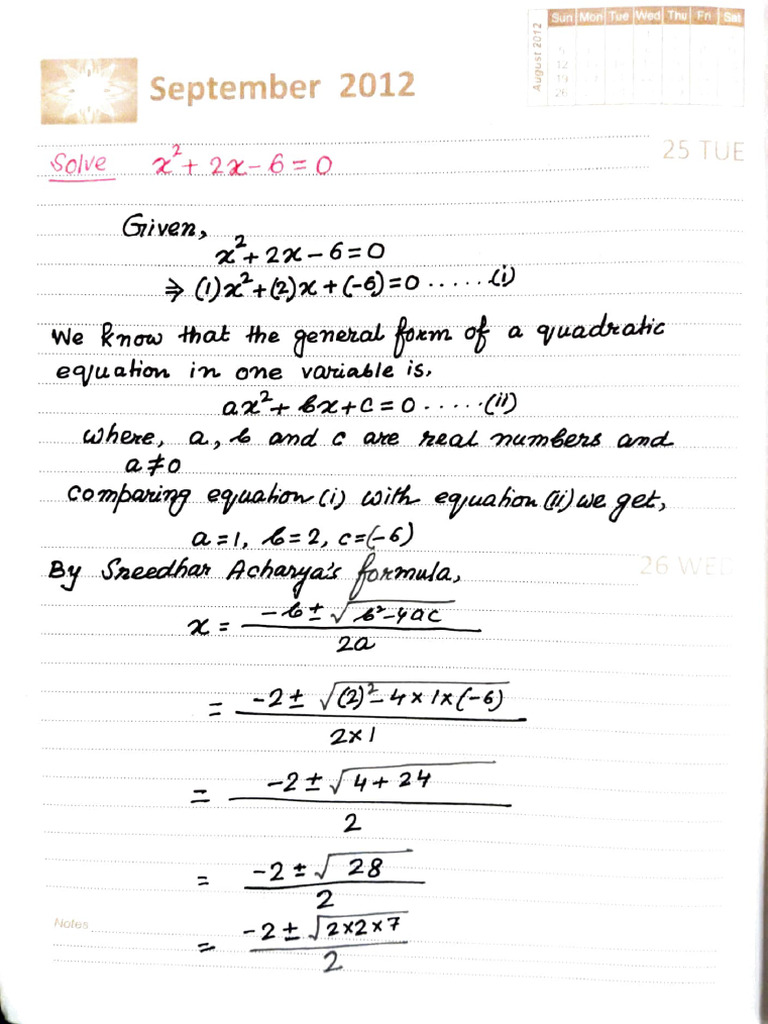 September 2012
August 2012
Sun Mon Tue Wed Thu Fri Sat
12
19
26
25 TUE
Solve x² + 2x - 6 = 0
Given,
x² + 2x - 6 = 0
⇒ (1)x² + (2)x + (-6) = 0 ..... (i)
We know that the general form of a quadratic
equation in one variable is,
ax² + bx + c = 0 ..... (ii)
where, a, b and c are real numbers and
a ≠ 0
comparing equation (i) with equation (ii) we get,
a = 1, b = 2, c = (-6)
26 WED
By Sreedhar Acharya's formula,
x = (-b ± √(b² - 4ac)) / 2a
= (-2 ± √((2)² - 4 × 1 × (-6))) / 2×1
= (-2 ± √(4 + 24)) / 2
= (-2 ± √28) / 2
Notes
= (-2 ± √(2×2×7)) / 2